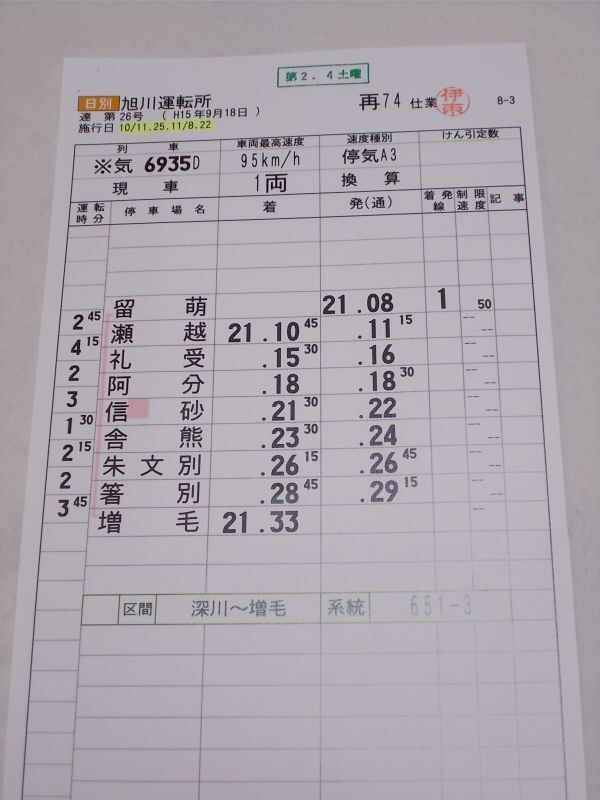 第2.4土曜
日別 旭川運転所 再74 仕業 伊東 8-3
達 第26号 ( H15年9月18日 )
施行日 10/11.25.11/8.22
列 車 車両最高速度 速度種別 けん引定数
※気 6935D 95km/h 停気A3
現 車 1両 換 算
運転時分 停車場名 着 発(通) 着発線 制限速度 記事
留 萌 21.08 1 50
2 45
瀬 越 21.10 45 .11 15 --
4 15
礼 受 .15 30 .16 --
2
阿 分 .18 .18 30 --
3
信 砂 .21 30 .22 --
1 30
舎 熊 .23 30 .24 --
2 15
朱 文 別 .26 15 .26 45 --
2
箸 別 .28 45 .29 15 --
3 45
増 毛 21.33 --
区間 深川～増毛 系統 651-3